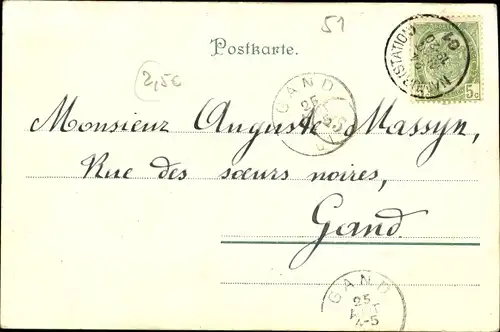 51
Postkarte.
2,50
NAMUR (STATION)
5c
GAND
25
Monsieur Auguste Massyn,
Rue des sœurs noires,
Gand.
GAND
25
4-5